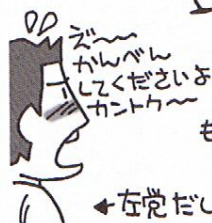 え〜〜
かんべん
してくださいよ
カントク〜
も
←左党だし